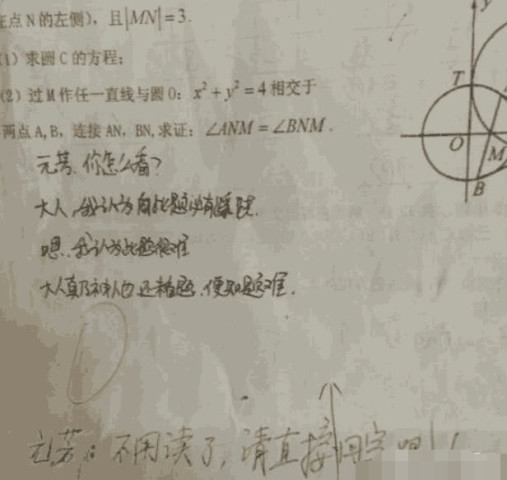 在点N的左侧),且|MN|=3.
(1)求圆C的方程;
(2)过M作任一直线与圆O: x²+y²=4相交于
两点A,B,连接AN,BN,求证:∠ANM=∠BNM.
y
T
O
M
B
元芳,你怎么看?
大人,我认为此题必有蹊跷.
嗯,我认为此题很难
大人真乃神人也,还
题,便知题难.
0
元芳:不用读了,请直接
吧!